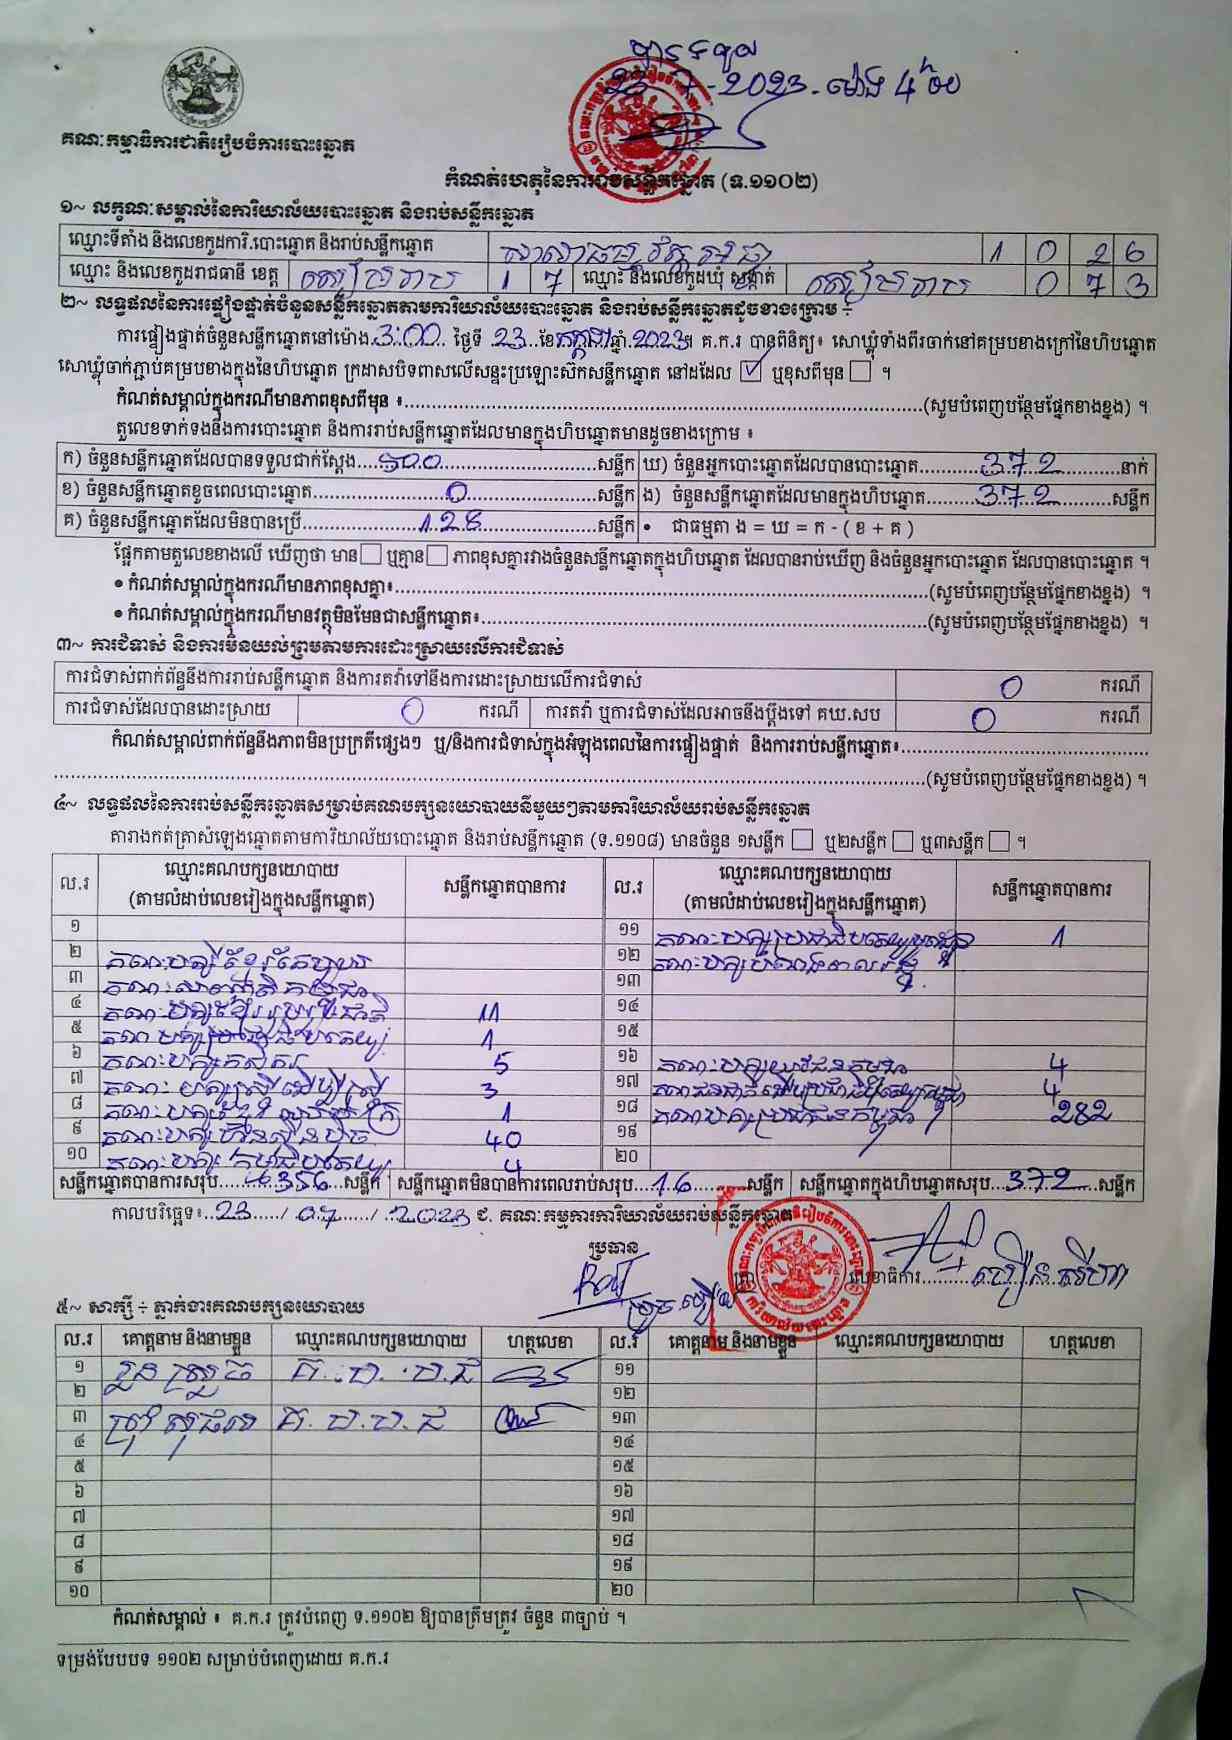 បានទទួល
23-7-2023. ម៉ោង 4
គណៈកម្មាធិការជាតិរៀបចំការបោះឆ្នោត
កំណត់ហេតុនៃការរាប់សន្លឹកឆ្នោត (ទ.១១០២)
១~ លក្ខណៈសម្គាល់នៃការិយាល័យបោះឆ្នោត និងរាប់សន្លឹកឆ្នោត
ឈ្មោះទីតាំង និងលេខកូដការិ.បោះឆ្នោត និងរាប់សន្លឹកឆ្នោត សាលាធម្មវត្ត 1 0 2 6
ឈ្មោះ និងលេខកូដរាជធានី ខេត្ត សៀមរាប 1 7 ឈ្មោះ និងលេខកូដឃុំ សង្កាត់ សៀមរាប 0 7 3
២~ លទ្ធផលនៃការផ្ទៀងផ្ទាត់ចំនួនសន្លឹកឆ្នោតតាមការិយាល័យបោះឆ្នោត និងរាប់សន្លឹកឆ្នោតដូចខាងក្រោម ៖
ការផ្ទៀងផ្ទាត់ចំនួនសន្លឹកឆ្នោតនៅម៉ោង 3:00 ថ្ងៃទី 23 ខែ កក្កដា ឆ្នាំ 2023។ គ.ក.រ បានពិនិត្យ៖ សោឃ្លុំទាំងពីរចាក់នៅគម្របខាងក្រៅនៃហិបឆ្នោត
សោឃ្លុំចាក់ភ្ជាប់គម្របខាងក្នុងនៃហិបឆ្នោត ក្រដាសបិទពាសលើសន្ទះប្រឡោះស៊កសន្លឹកឆ្នោត នៅដដែល ☑ ឬខុសពីមុន ☐ ។
កំណត់សម្គាល់ក្នុងករណីមានភាពខុសពីមុន ៖ (សូមបំពេញបន្ថែមផ្នែកខាងខ្នង) ។
តួលេខទាក់ទងនឹងការបោះឆ្នោត និងការរាប់សន្លឹកឆ្នោតដែលមានក្នុងហិបឆ្នោតមានដូចខាងក្រោម ៖
ក) ចំនួនសន្លឹកឆ្នោតដែលបានទទួលជាក់ស្តែង 500 សន្លឹក ឃ) ចំនួនអ្នកបោះឆ្នោតដែលបានបោះឆ្នោត 372 នាក់
ខ) ចំនួនសន្លឹកឆ្នោតខូចពេលបោះឆ្នោត 0 សន្លឹក ង) ចំនួនសន្លឹកឆ្នោតដែលមានក្នុងហិបឆ្នោត 372 សន្លឹក
គ) ចំនួនសន្លឹកឆ្នោតដែលមិនបានប្រើ 128 សន្លឹក • ជាធម្មតា ង = ឃ = ក - ( ខ + គ )
ផ្អែកតាមតួលេខខាងលើ ឃើញថា មាន ☐ ឬគ្មាន ☐ ភាពខុសគ្នារវាងចំនួនសន្លឹកឆ្នោតក្នុងហិបឆ្នោត ដែលបានរាប់ឃើញ និងចំនួនអ្នកបោះឆ្នោត ដែលបានបោះឆ្នោត ។
• កំណត់សម្គាល់ក្នុងករណីមានភាពខុសគ្នា៖ (សូមបំពេញបន្ថែមផ្នែកខាងខ្នង) ។
• កំណត់សម្គាល់ក្នុងករណីមានវត្ថុមិនមែនជាសន្លឹកឆ្នោត៖ (សូមបំពេញបន្ថែមផ្នែកខាងខ្នង) ។
៣~ ការជំទាស់ និងការមិនយល់ព្រមតាមការដោះស្រាយលើការជំទាស់
ការជំទាស់ពាក់ព័ន្ធនឹងការរាប់សន្លឹកឆ្នោត និងការតវ៉ាទៅនឹងការដោះស្រាយលើការជំទាស់ 0 ករណី
ការជំទាស់ដែលបានដោះស្រាយ 0 ករណី ការតវ៉ា ឬការជំទាស់ដែលអាចនឹងប្តឹងទៅ គឃ.សប 0 ករណី
កំណត់សម្គាល់ពាក់ព័ន្ធនឹងភាពមិនប្រក្រតីផ្សេងៗ ឬ/និងការជំទាស់ក្នុងអំឡុងពេលនៃការផ្ទៀងផ្ទាត់ និងការរាប់សន្លឹកឆ្នោត៖
(សូមបំពេញបន្ថែមផ្នែកខាងខ្នង) ។
៤~ លទ្ធផលនៃការរាប់សន្លឹកឆ្នោតសម្រាប់គណបក្សនយោបាយនីមួយៗតាមការិយាល័យរាប់សន្លឹកឆ្នោត
តារាងកត់ត្រាសំឡេងឆ្នោតតាមការិយាល័យបោះឆ្នោត និងរាប់សន្លឹកឆ្នោត (ទ.១១០៨) មានចំនួន ១សន្លឹក ☐ ឬ២សន្លឹក ☐ ឬ៣សន្លឹក ☐ ។
ល.រ ឈ្មោះគណបក្សនយោបាយ (តាមលំដាប់លេខរៀងក្នុងសន្លឹកឆ្នោត) សន្លឹកឆ្នោតបានការ ល.រ ឈ្មោះគណបក្សនយោបាយ (តាមលំដាប់លេខរៀងក្នុងសន្លឹកឆ្នោត) សន្លឹកឆ្នោតបានការ
១ ១១ 1
២ ១២
៣ ១៣
៤ 11 ១៤
៥ 1 ១៥
៦ គណៈបក្សកសិករ 5 ១៦ គណៈបក្សយុវជនកម្ពុជា 4
៧ គណៈបក្សស្ត្រីដើម្បីស្ត្រី 3 ១៧ 4
៨ 1 ១៨ គណបក្សប្រជាជនកម្ពុជា 282
៩ គណៈបក្សហ៊្វុនស៊ិនប៉ិច 40 ១៩
១០ 4 ២០
សន្លឹកឆ្នោតបានការសរុប 356 សន្លឹក សន្លឹកឆ្នោតមិនបានការពេលរាប់សរុប 16 សន្លឹក សន្លឹកឆ្នោតក្នុងហិបឆ្នោតសរុប 372 សន្លឹក
កាលបរិច្ឆេទ៖ 23 / 07 / 2023 ជ. គណៈកម្មការការិយាល័យរាប់សន្លឹកឆ្នោត
ប្រធាន
លេខាធិការ
៥~ សាក្សី ÷ ភ្នាក់ងារគណបក្សនយោបាយ
ល.រ គោត្តនាម និងនាមខ្លួន ឈ្មោះគណបក្សនយោបាយ ហត្ថលេខា ល.រ គោត្តនាម និងនាមខ្លួន ឈ្មោះគណបក្សនយោបាយ ហត្ថលេខា
១ គ.ប.ប.ជ ១១
២ ១២
៣ គ.ប.ប.ជ ១៣
៤ ១៤
៥ ១៥
៦ ១៦
៧ ១៧
៨ ១៨
៩ ១៩
១០ ២០
កំណត់សម្គាល់ ៖ គ.ក.រ ត្រូវបំពេញ ទ.១១០២ ឱ្យបានត្រឹមត្រូវ ចំនួន ៣ច្បាប់ ។
ទម្រង់បែបបទ ១១០២ សម្រាប់បំពេញដោយ គ.ក.រ